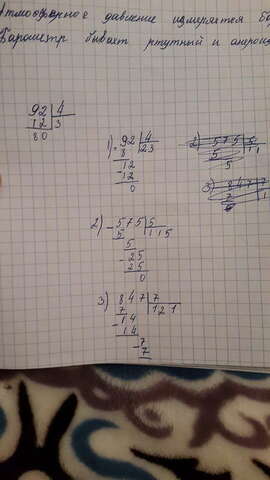 Атмосферное давление измеряется ба
Барометр бывает ртутный и анерои
92 | 4
12 | 3
80
1) - 92 | 4
8 | 23
- 12
12
0
2) 575 | 5
5 | 11
5
3) 847 | 7
7 | 1
2) - 575 | 5
5 | 115
5
- 25
25
0
3) 847 | 7
7 | 121
- 14
14
- 7
7